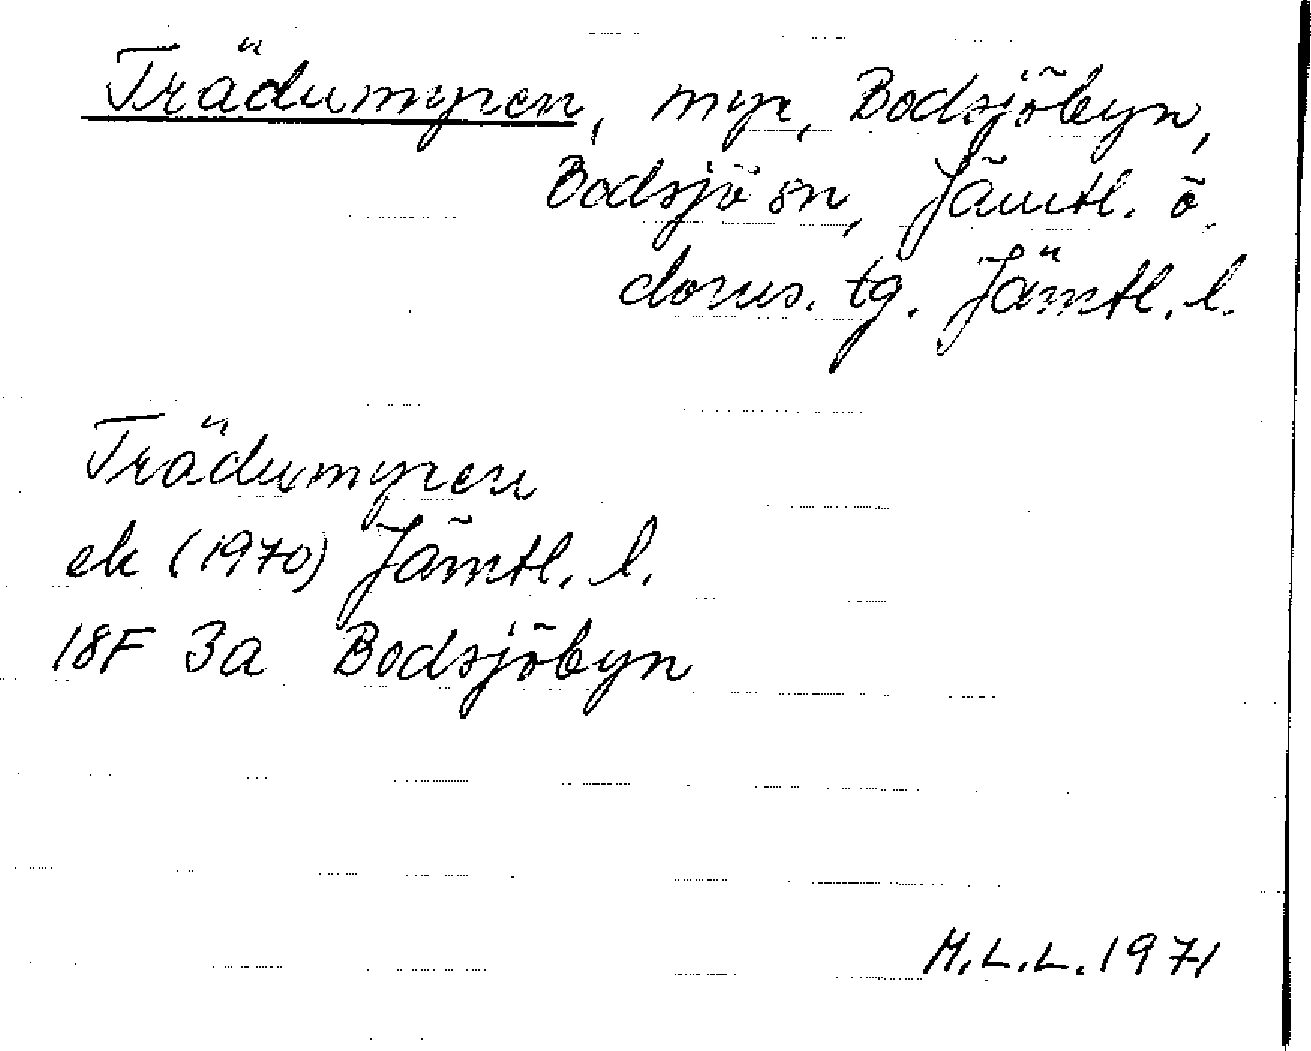 Trädumyren, myr, Bodsjöbyn,
Bodsjö sn, Jämtl. ö.
doms. tg. Jämtl. l.
Trädumyren
ek (1970) Jämtl. l.
18F 3a Bodsjöbyn
M.L.L. 1971